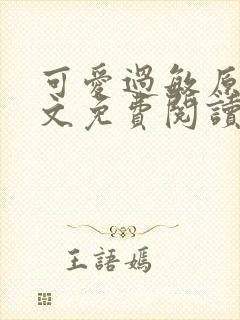 可愛過敏原
文免費閱讀
王語嫣